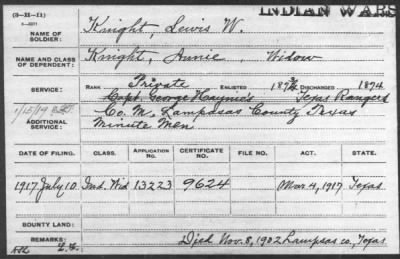 (3-H-11) INDIAN WARS
NAME OF SOLDIER: Knight, Lewis W.
NAME AND CLASS OF DEPENDENT: Knight, Annie, Widow
SERVICE: RANK Private ENLISTED 1873/4 DISCHARGED 1874
Capt. George Haynie's Texas Rangers
1/15/19
ADDITIONAL SERVICE: Co. M. Lampasas County Texas
Minute Men
DATE OF FILING. CLASS. APPLICATION NO. CERTIFICATE NO. FILE NO. ACT. STATE.
1917 July 10 Ind. Wid 13223 9624 Mar 4, 1917 Texas
BOUNTY LAND:
REMARKS: Died Nov. 8, 1902 Lampsas co., Texas